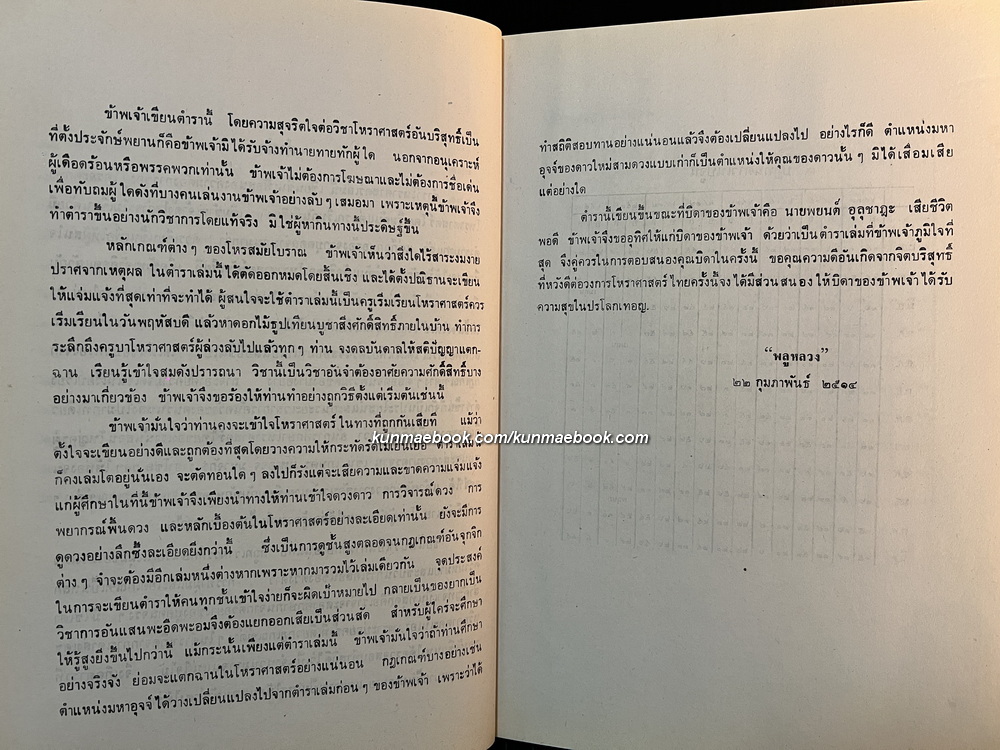 ข้าพเจ้าเขียนตำรานี้ โดยความสุจริตใจต่อวิชาโหราศาสตร์อันบริสุทธิ์เป็น
ที่ตั้งประจักษ์พยานก็คือข้าพเจ้ามิได้รับจ้างทำนายทายทักผู้ใด นอกจากอนุเคราะห์
ผู้เดือดร้อนหรือพรรคพวกเท่านั้น ข้าพเจ้าไม่ต้องการโฆษณาและไม่ต้องการชื่อเด่น
เพื่อทับถมผู้ใดดังที่บางคนเล่นงานข้าพเจ้าอย่างลับๆ เสมอมา เพราะเหตุนี้ข้าพเจ้าจึง
ทำตำราขึ้นอย่างนักวิชาการโดยแท้จริง มิใช่ผู้หากินทางนี้ประดิษฐ์ขึ้น
หลักเกณฑ์ต่างๆ ของโหรสมัยโบราณ ข้าพเจ้าเห็นว่าสิ่งใดไร้สาระงมงาย
ปราศจากเหตุผล ในตำราเล่มนี้ได้ตัดออกหมดโดยสิ้นเชิง และได้ตั้งปณิธานจะเขียน
ให้แจ่มแจ้งที่สุดเท่าที่จะทำได้ ผู้สนใจจะใช้ตำราเล่มนี้เป็นครูเริ่มเรียนโหราศาสตร์ควร
เริ่มเรียนในวันพฤหัสบดี แล้วหาดอกไม้ธูปเทียนบูชาสิ่งศักดิ์สิทธิ์ภายในบ้าน ทำการ
ระลึกถึงครูบาโหราศาสตร์ผู้ล่วงลับไปแล้วทุกๆ ท่าน จงดลบันดาลให้สติปัญญาแตก-
ฉาน เรียนรู้เข้าใจสมดังปรารถนา วิชานี้เป็นวิชาอันจำต้องอาศัยความศักดิ์สิทธิ์บาง
อย่างมาเกี่ยวข้อง ข้าพเจ้าจึงขอร้องให้ท่านทำอย่างถูกวิธีตั้งแต่เริ่มต้นเช่นนี้
ข้าพเจ้ามั่นใจว่าท่านคงจะเข้าใจโหราศาสตร์ในทางที่ถูกกันเสียที แม้ว่า
ตั้งใจจะเขียนอย่างดีและถูกต้องที่สุดโดยวางความให้กระทัดรัดไม่เยิ่นเย้อ ตำราเล่มนี้
ก็คงเล่มโตอยู่นั่นเอง จะตัดทอนใดๆ ลงไปก็รังแต่จะเสียความและขาดความแจ่มแจ้ง
แก่ผู้ศึกษาในที่นี้ข้าพเจ้าจึงเพียงนำทางให้ท่านเข้าใจดวงดาว การวิจารณ์ดวง การ
พยากรณ์พื้นดวง และหลักเบื้องต้นในโหราศาสตร์อย่างละเอียดเท่านั้น ยังจะมีการ
ดูดวงอย่างลึกซึ้งละเอียดยิ่งกว่านี้ ซึ่งเป็นการดูชั้นสูงตลอดจนกฎเกณฑ์อันจุกจิก
ต่างๆ จำจะต้องมีอีกเล่มหนึ่งต่างหากเพราะหากมารวมไว้เล่มเดียวกัน จุดประสงค์
ในการจะเขียนตำราให้คนทุกชั้นเข้าใจง่ายก็จะผิดเป้าหมายไป กลายเป็นของยากเป็น
วิชาการอันแสนพะอืดพะอมจึงต้องแยกออกเสียเป็นส่วนสัด สำหรับผู้ใคร่จะศึกษา
ให้รู้สูงยิ่งขึ้นไปกว่านี้ แม้กระนั้นเพียงแต่ตำราเล่มนี้ ข้าพเจ้ามั่นใจว่าถ้าท่านศึกษา
อย่างจริงจัง ย่อมจะแตกฉานในโหราศาสตร์อย่างแน่นอน กฎเกณฑ์บางอย่างเช่น
ตำแหน่งมหาอุจจ์ได้วางเปลี่ยนแปลงไปจากตำราเล่มก่อนๆ ของข้าพเจ้า เพราะว่าได้
ทำสถิติสอบทานอย่างแน่นอนแล้วจึงต้องเปลี่ยนแปลงไป อย่างไรก็ดี ตำแหน่งมหา
อุจจ์ของดาวใหม่สามดวงแบบเก่าก็เป็นตำแหน่งให้คุณของดาวนั้นๆ มิได้เสื่อมเสีย
แต่อย่างใด
ตำรานี้เขียนขึ้นขณะที่บิดาของข้าพเจ้าคือ นายพยนต์ อุลุชาฎะ เสียชีวิต
พอดี ข้าพเจ้าจึงขออุทิศให้แก่บิดาของข้าพเจ้า ด้วยว่าเป็นตำราเล่มที่ข้าพเจ้าภูมิใจที่
สุด จึงคู่ควรในการตอบสนองคุณบิดาในครั้งนี้ ขอคุณความดีอันเกิดจากจิตบริสุทธิ์
ที่หวังดีต่อวงการโหราศาสตร์ไทยครั้งนี้จงได้มีส่วนสนองให้บิดาของข้าพเจ้าได้รับ
ความสุขในปรโลกเทอญ.
“พลูหลวง”
๒๒ กุมภาพันธ์ ๒๕๑๔
kunmaebook.com/kunmaebook.com